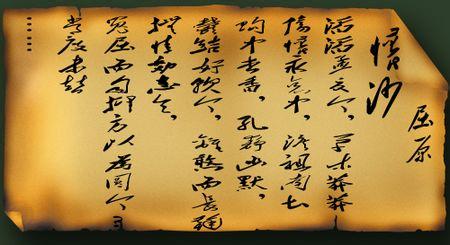 怀沙
屈原
滔滔孟夏兮，草木莽莽
伤怀永哀兮，汩徂南土
兮杳杳，孔静幽默。
结纡轸兮，离慜而长鞠
抚情效志兮，
冤屈而自抑方以为圜兮，
常度未替
······